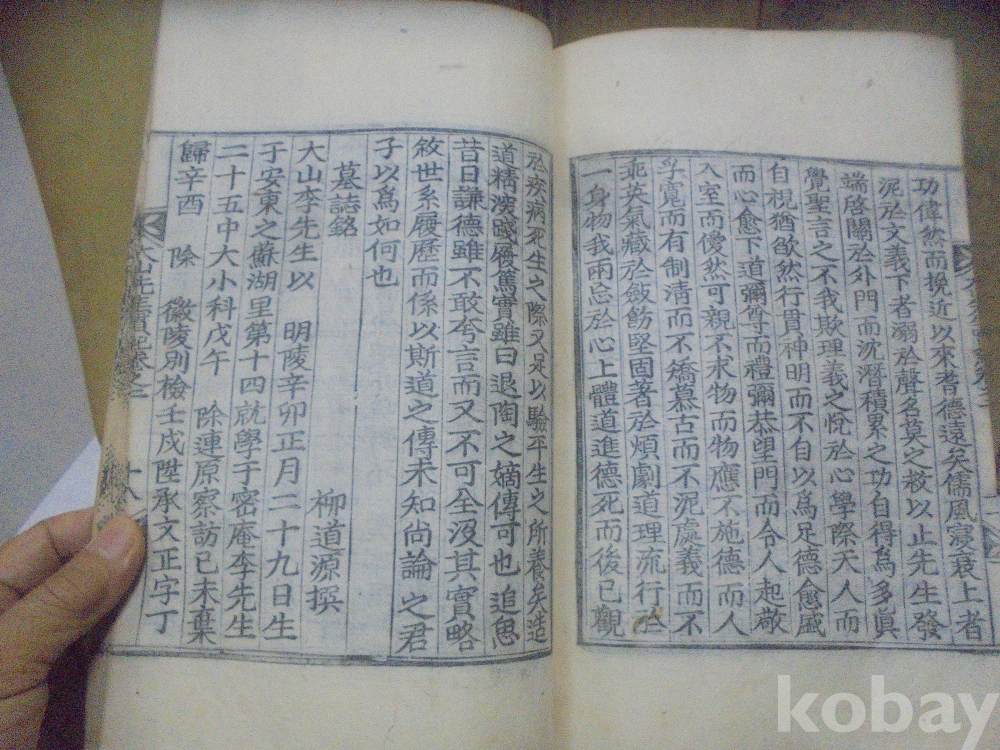 功偉然而挽近以來耆德遠矣儒風寖衰上者
泥於文義下者溺於聲名莫之救以止先生發
端啓關於外門而沉潛積累之功自得爲多眞
覺聖言之不我欺理義之悅於心學際天人而
自視猶欿然行貫神明而不自以爲足德愈盛
而心愈下道彌尊而禮彌恭望門而令人起敬
入室而儍然可親不求物而物應不施德而人
孚寬而有制淸而不矯慕古而不泥處義而不
乖英氣藏於斂飭堅固著於煩劇道理流行於
一身物我兩忘於心上體道進德死而後已觀
於疾病死生之際又足以驗平生之所養矣造
道精深踐履篤實雖曰退陶之嫡傳可也追惟
昔日謙德雖不敢夸言而又不可全沒其實略
敘世系履歷而係以斯道之傳未知尙論之君
子以爲如何也
墓誌銘
柳道源撰
大山李先生以 明陵辛卯正月二十九日生
于安東之蘇湖里第十四就學于密庵李先生
二十五中大小科戊午 除連原察訪已未棄
歸辛酉 除 徽陵別檢壬戌陞承文正字丁
大山先生實記卷之三
十八
kobay